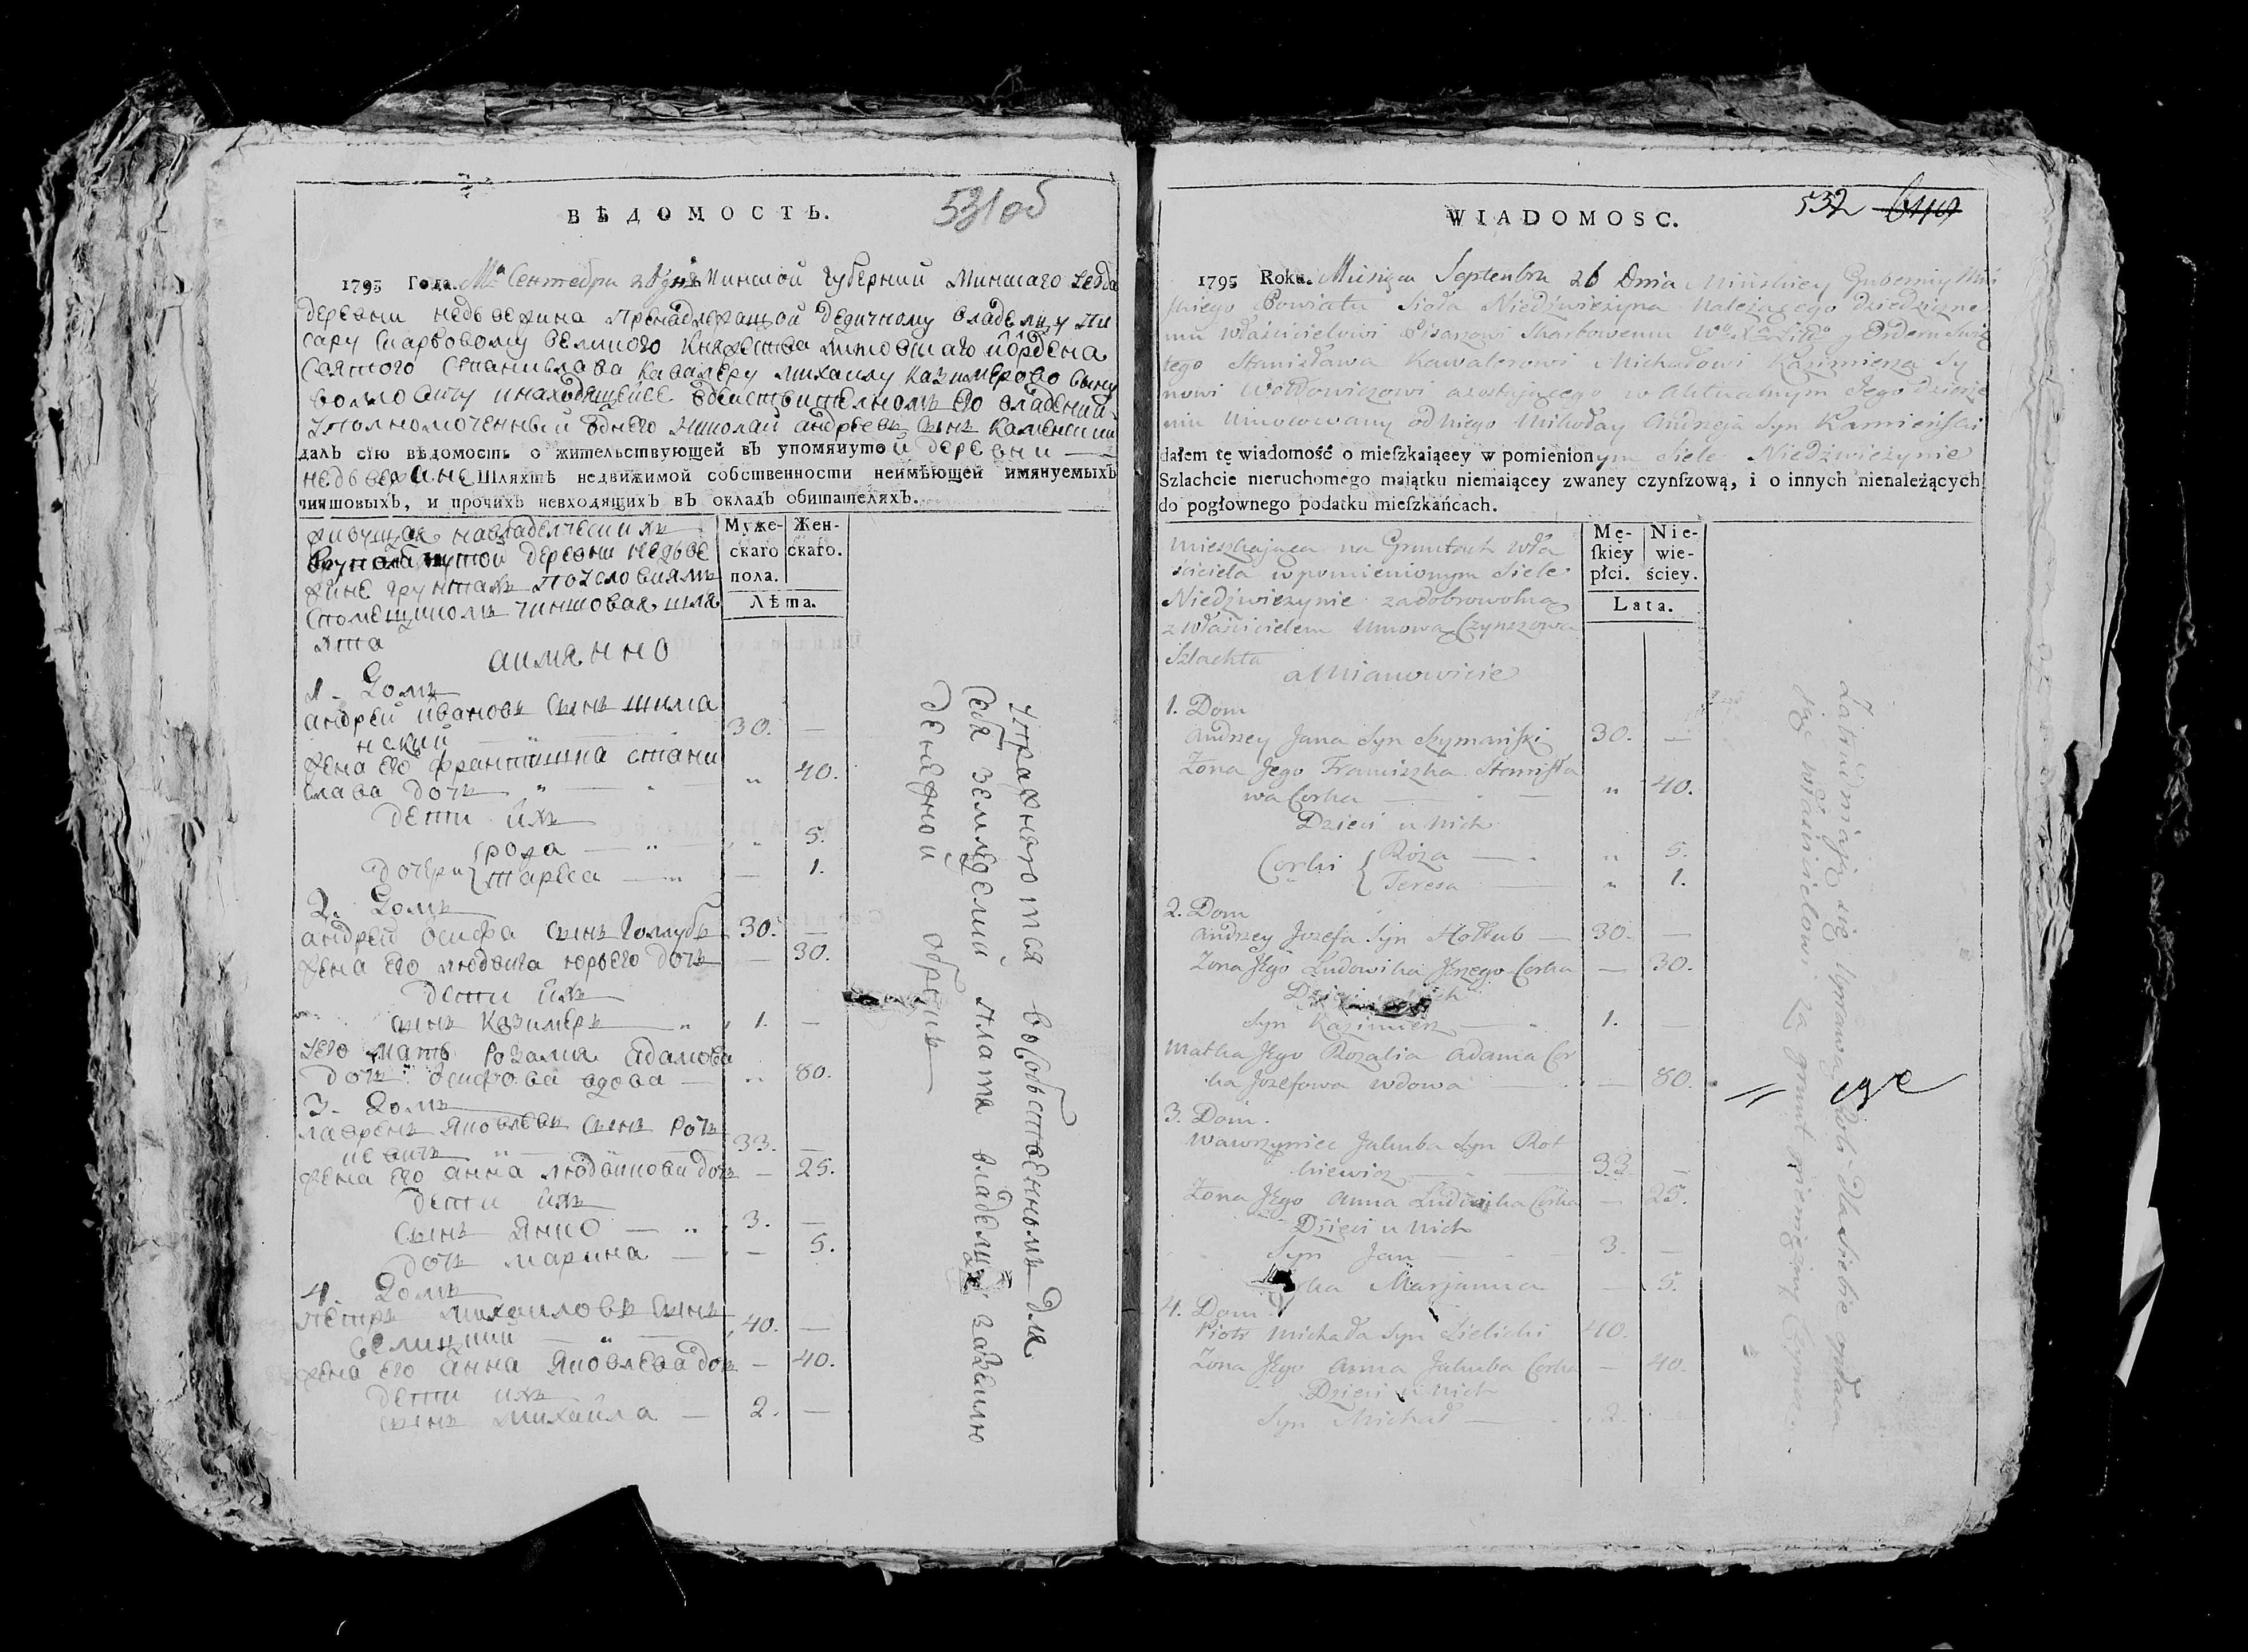 ВѢДОМОСТЬ.
531об
1795 Года. М̃ца Сентебря 26 дня Минской Губерний Минскаго Уезда
деревни недьведина Пренадлежащой дедичному владелцу Пи
сару скарбовому великого Княжества литовскаго и ордена
Святого Станислава Кавалеру михаилу казимерово сыну
воловичу инаходящейсе вдействительномъ его владений
уполномоченный однего Николай андреевъ сынъ каменский
далъ сїю вѣдомость о жительствующей въ упомянутой деревни
Шляхтѣ недвижимой собственности неимѣющей имянуемыхъ
чиншовыхъ, и прочихъ невходящихъ въ окладъ обитателяхъ.
Муже-скаго пола.
Жен-скаго.
Лѣта.
живущая навладелческихъ
деревни недьве
жине грунтахъ поусловиямъ
спомещикомъ чиншовая шля
хта
аимянно
1. Домъ
андрей ивановъ сынъ шима
нский 30. —
жена его францишка стани
слава дочь „ 40.
дети ихъ
рожа „ 5.
дочери тареса — 1.
2. Домъ
андрей осифа сынъ Голлубъ 30. —
жена его людвига юрьего дочь — 30.
дети ихъ
сынъ казимеръ „ 1. —
его мать розалия адамова
дочь осифова вдова „ 80.
3. Домъ
лаврень яковлевъ сынъ роть
кевичъ 33. —
жена его анна людвикова дочь — 25.
дети ихъ
сынъ янко „ 3. —
дочь марина — 5.
4. Домъ
петръ михаиловъ сынъ
белицкий 40. —
жена его анна яковлева дочь — 40.
дети ихъ
сынъ михайла — 2. —
упражняютса вособственномъ для
себя земледелий плата владелцу заземлю
денежной оброкъ
WIADOMOSC.
532
1795 Roku. Miesąca Septembra 26 Dnia Mińskiey Gubernij Miń
skiego Powiatu Sioła Niedźwieżyna Należącego Dziedziczne
mu Właścicielowi Pisarzowi Skarbowemu y Orderu Świę
tego Stanisława Kawalerowi Michałowi Kazimierza Sy
nowi Wołłowiczowi azostającego w Aktualnym Jego dzierże
niu Umocowany odniego Mikołay Andrzeja Syn Kamieński
dałem tę wiadomość o mieſzkaiącey w pomienionym Siele Niedźwieżynie
Szlachcie nieruchomego maiątku niemaiącey zwaney czynſzową, i o innych nienależących
do pogłownego podatku mieſzkańcach.
Mę-ſkiey płci.
Nie-wie-ściey.
Lata.
Mieszkająca na Gruntach Wła
ściciela wpomienionym Siele
Niedźwieżynie zadobrowolną
z Właścicielem Umową Czynszowa
Szlachta
a Mianowicie
1. Dom
Andrzey Jana Syn Szymański 30. —
Żona Jego Franciszka Stanisła
wa Corka „ 40.
Dzieci u Nich
Corki { Róża „ 5.
Teresa „ 1.
2. Dom
Andrzey Jozefa Syn Hołłub — 30. —
Żona Jego Ludowika Jerzego Corka — 30.
Dzieci u Nich
Syn Kazimierz 1. —
Matka Jego Rozalia Adama Cor
ka Jozefowa wdowa — 80.
3. Dom.
Wawrzyniec Jakuba Syn Rot
kiewicz 33 —
Żona Jego Anna Ludwika Corka — 25.
Dzieci u Nich
Syn Jan 3. —
Corka Marjanna — 5.
4. Dom
Piotr Michała Syn Bielicki 40.
Żona Jego Anna Jakuba Corka — 40.
Dzieci u Nich
Syn Michał — 2.
Zatrudniają się Uprawą Roli dla siebie opłaca
jąc Właścicielowi za grunt pieniężny Czynsz.